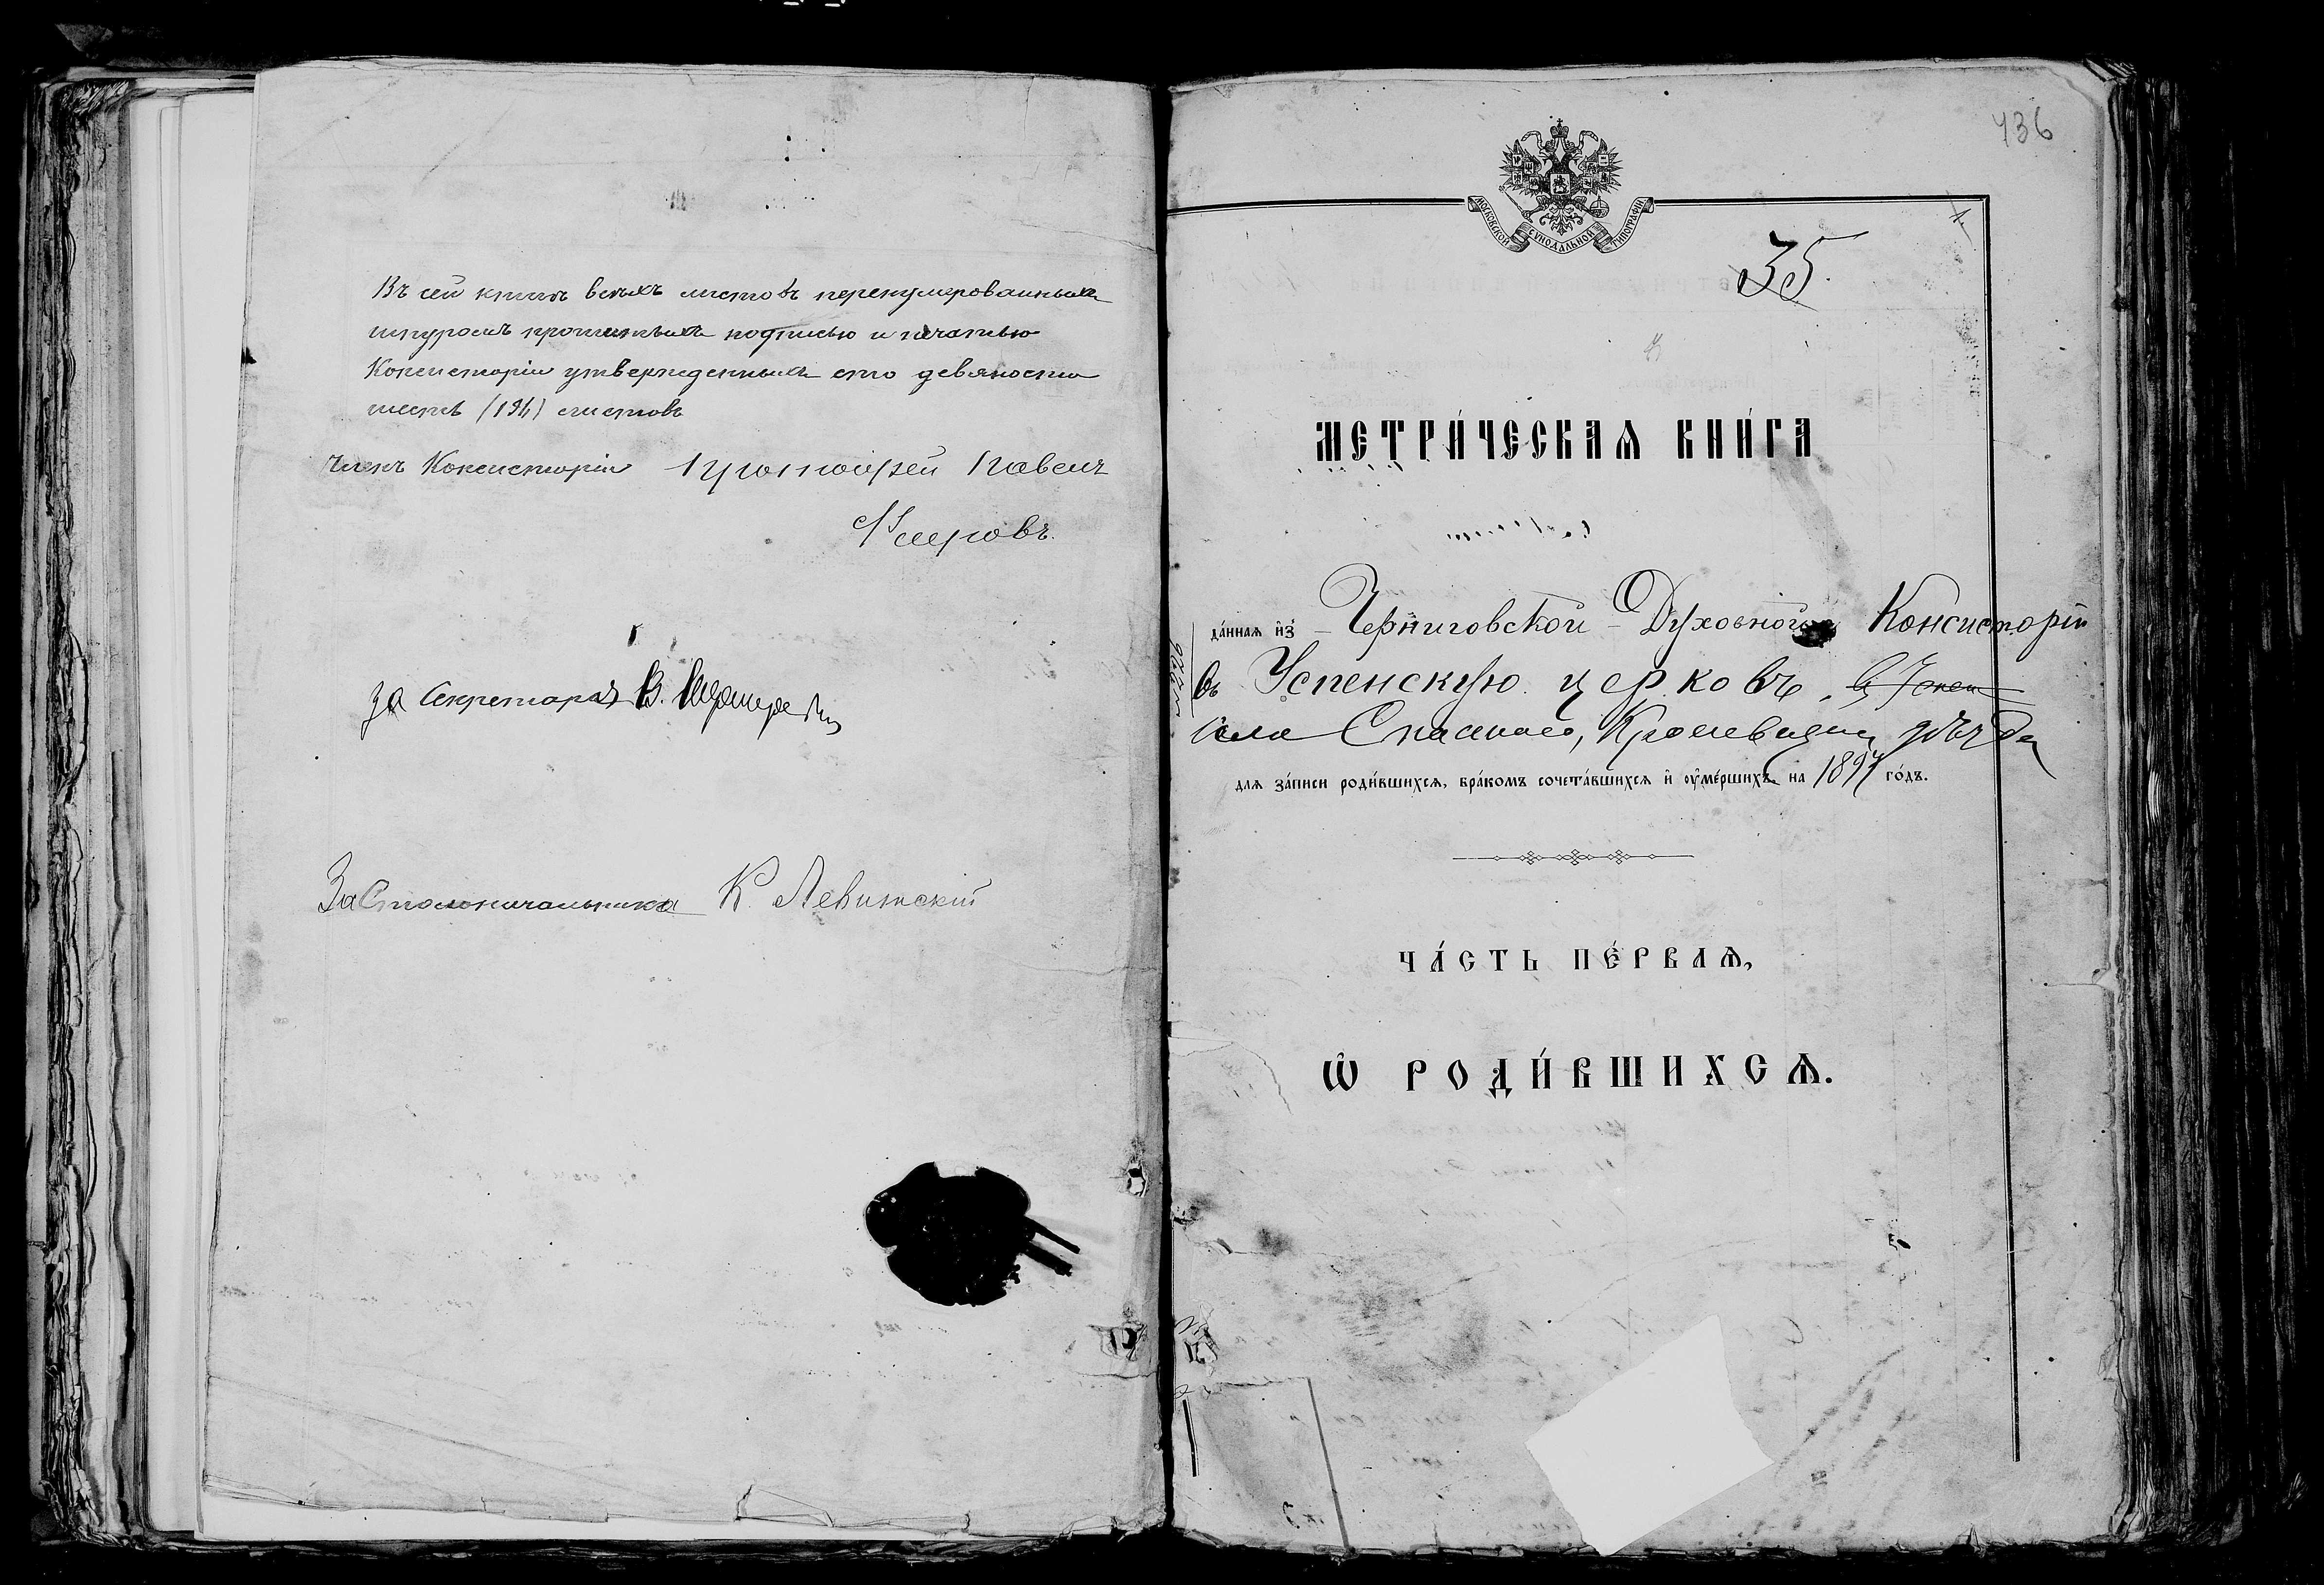 Въ сей книгѣ всѣхъ листовъ перенумерованныхъ
шнуромъ прошитыхъ подписью и печатью
Консисторіи утвержденныхъ сто девяносто
листовъ
Членъ Консисторіи Протоіерей Павелъ
За Секретаря В.
За Столоначальника К. Левитскій
436
МОСКОВСКОЙ СУНОДАЛЬНОЙ ТИПОГРАФІИ
1
35.
МЕТРИ́ЧЕСКАѦ КНИ́ГА
да́ннаѧ и҆з̾ Черниговской Духовной Консисторіи
въ Успенскую церковь,
села Спаскаго, Кролевецкаго уѣзда
для за́писи роди́вшихсѧ, бра́комъ сочета́вшихсѧ и҆ оу҆ме́ршихъ на 1897 го́дъ.
ЧА́СТЬ ПЕ́РВАѦ,
Ѡ҆ РОДИ́ВШИХСѦ.